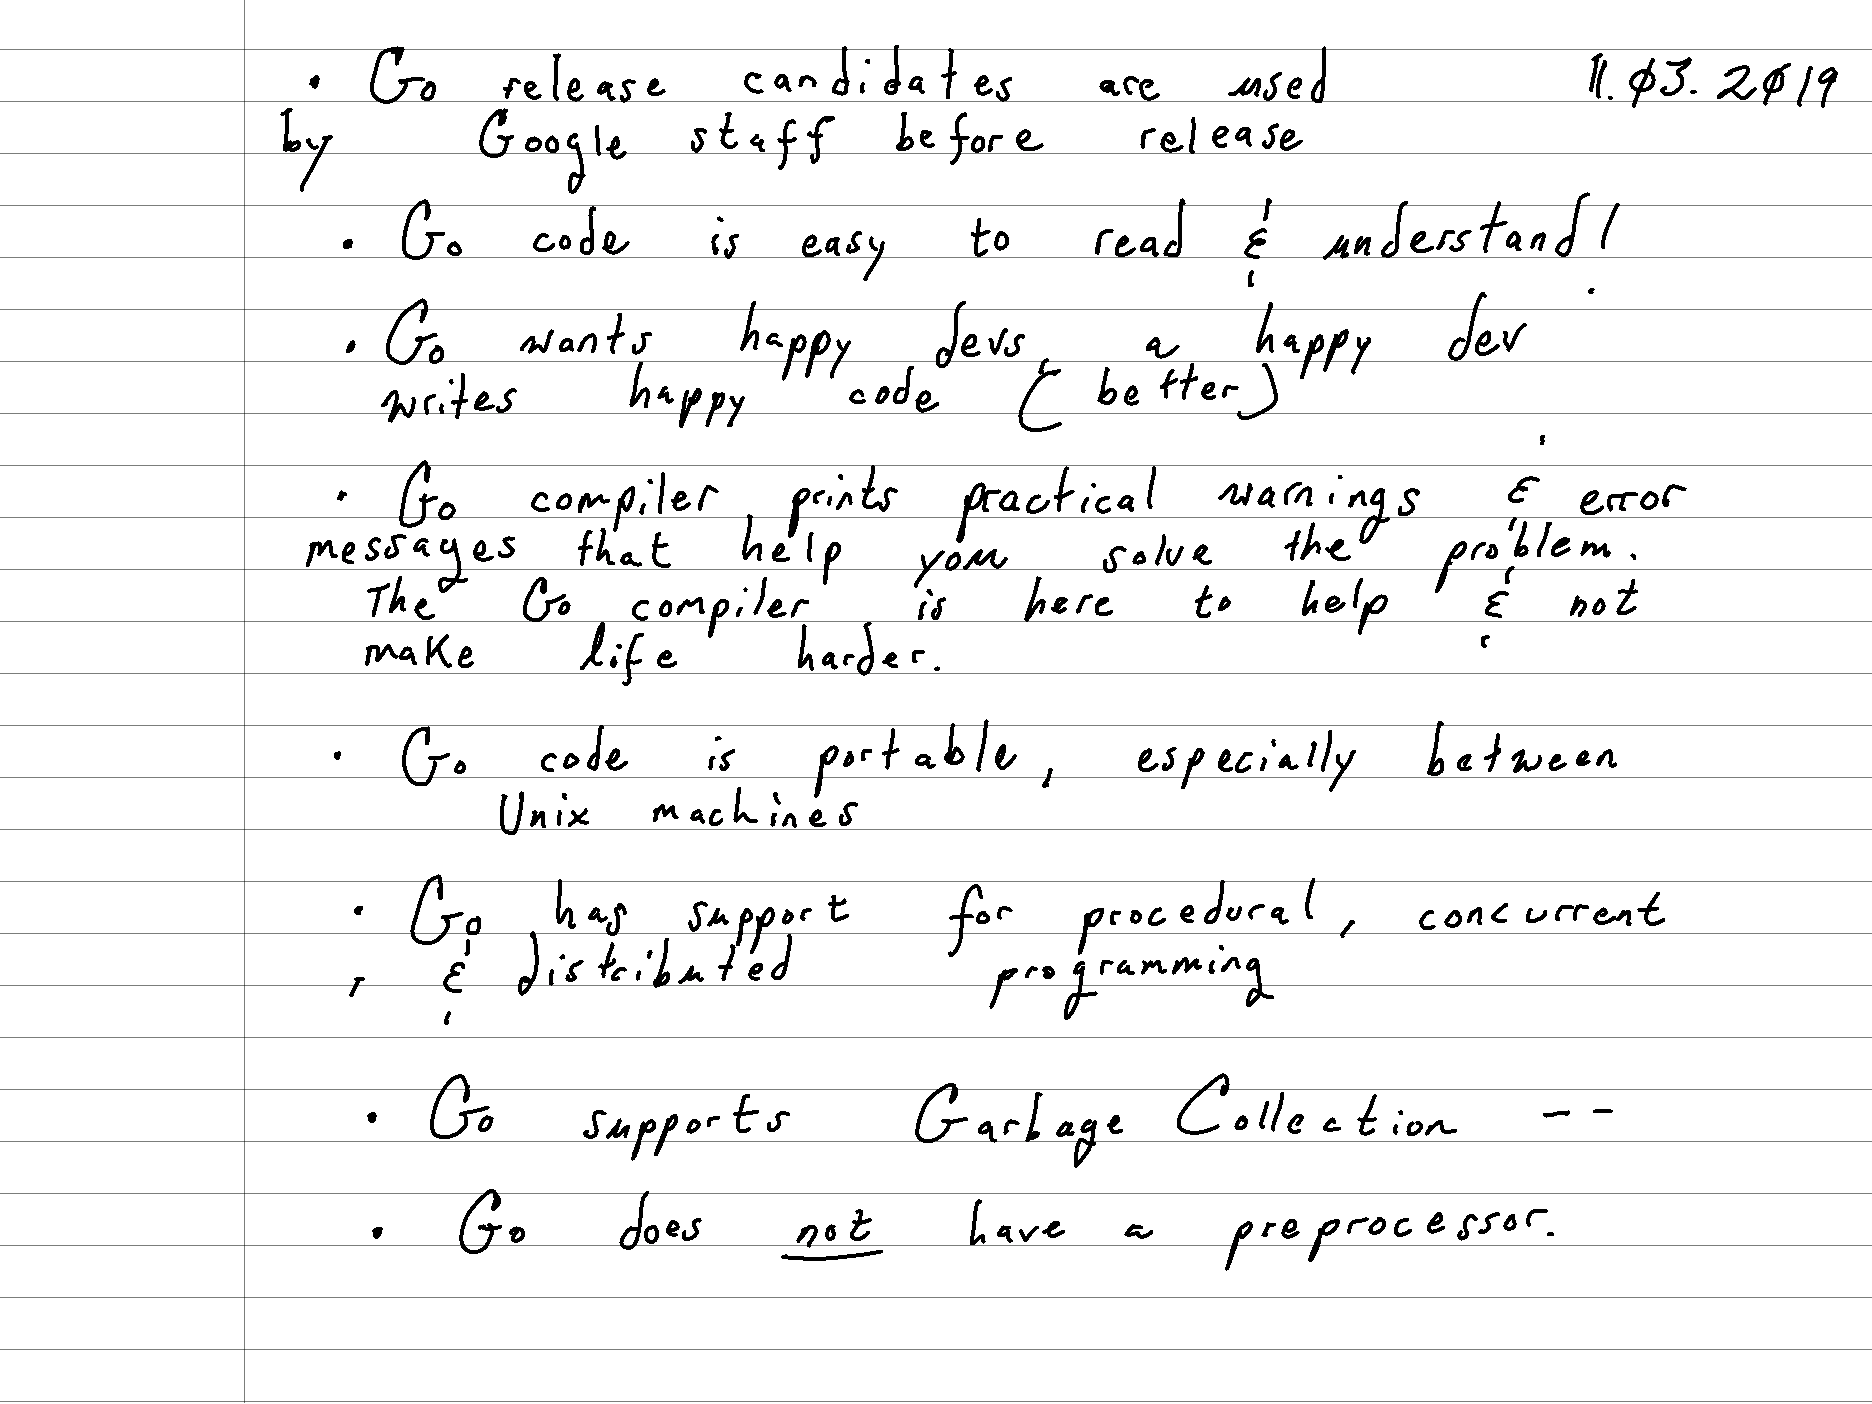 • Go release candidates are used 11.03.2019
by Google staff before release
• Go code is easy to read & understand!
• Go wants happy devs, a happy dev
writes happy code (better)
• Go compiler prints practical warnings & error
messages that help you solve the problem.
The Go compiler is here to help & not
make life harder.
• Go code is portable, especially between
Unix machines
• Go has support for procedural, concurrent
, & distributed programming
• Go supports Garbage Collection --
• Go does not have a preprocessor.